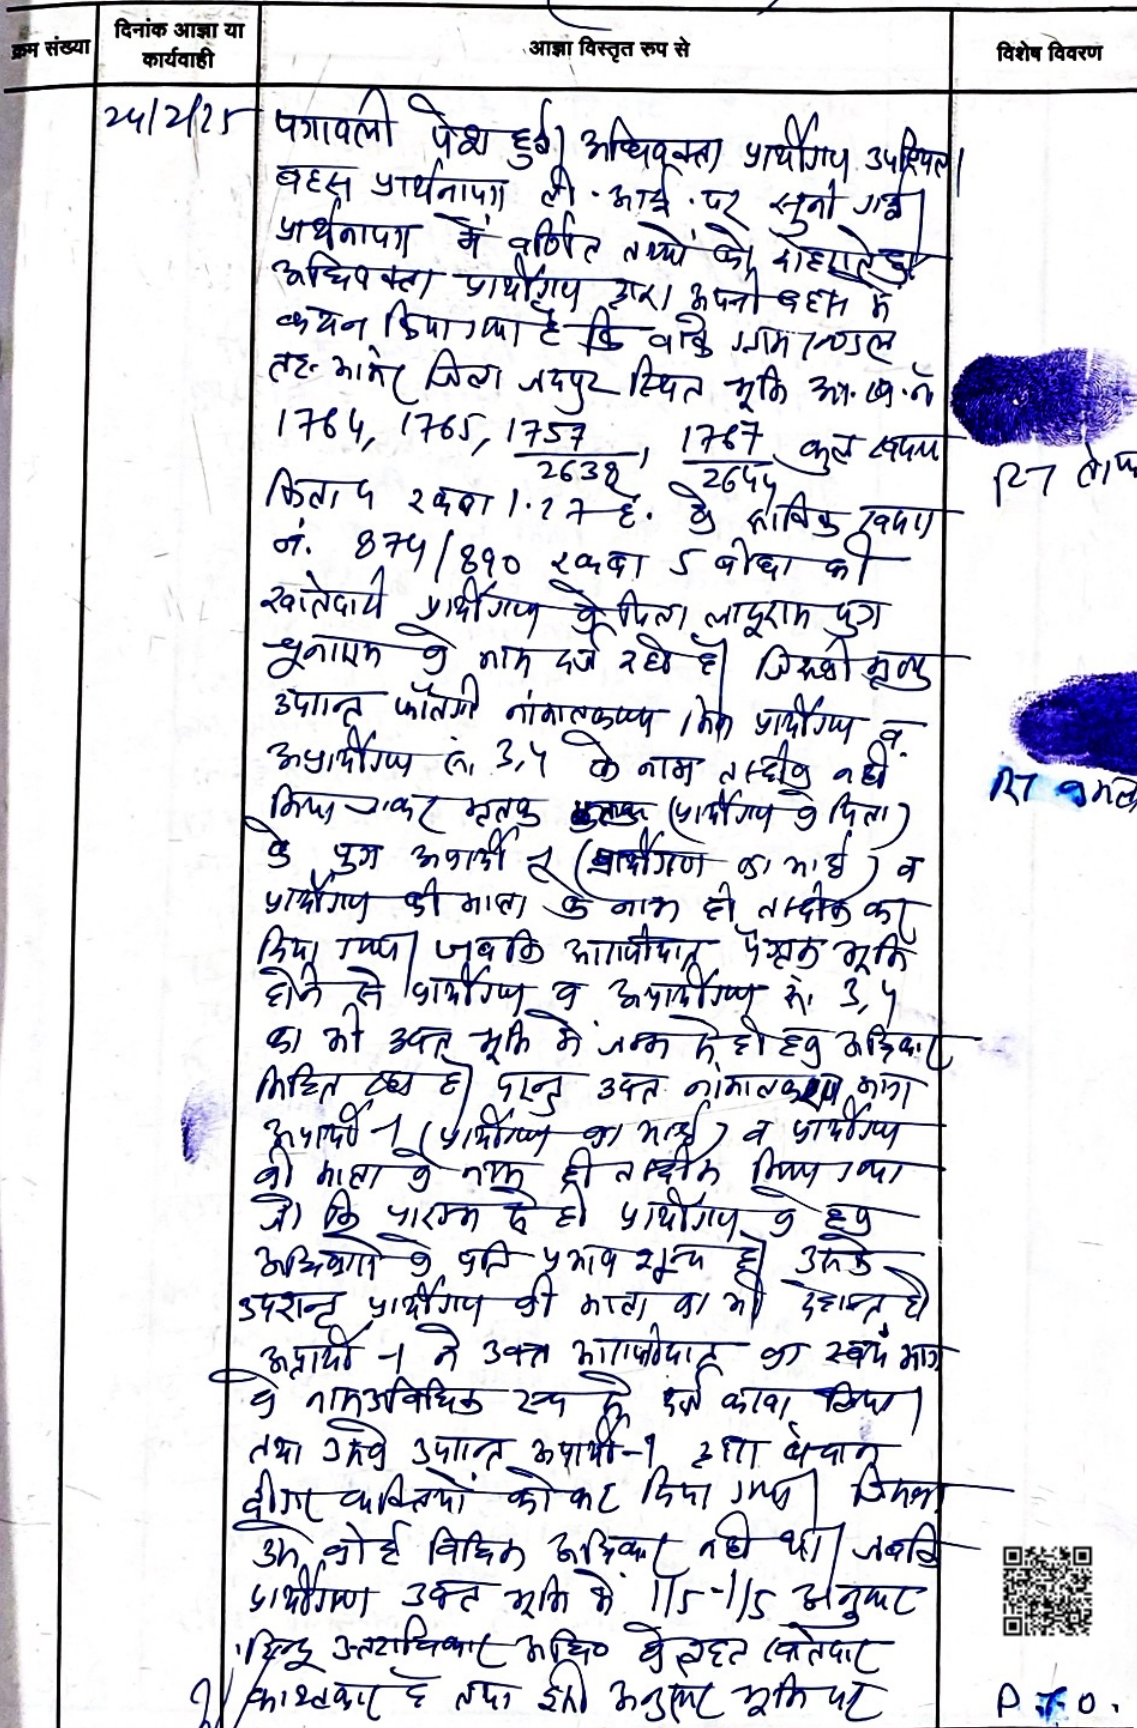 क्रम संख्या
दिनांक आज्ञा या कार्यवाही
आज्ञा विस्तृत रुप से
विशेष विवरण
24/2/25
पत्रावली पेश हुई। अधिवक्ता प्रार्थीगण उपस्थित।
बहस प्रार्थनापत्र टी.आई. पर सुनी गई।
प्रार्थनापत्र में वर्णित तथ्यों को दोहराते हुए
अधिवक्ता प्रार्थीगण द्वारा अपनी बहस में
कथन किया गया है कि वाके ग्राम
तह. आमेर जिला जयपुर स्थित भूमि आ.ख.नं
1764, 1765, 1757/2638, 1767/2644 कुल खसरा
किता 4 रकबा 1.27 है. के साबिक खसरा
नं. 874/890 रकबा 5 बीघा की
खातेदारी प्रार्थीगण के पिता लादूराम पुत्र
के नाम दर्ज रही है। जिसकी मृत्यु
उपरान्त फौतगी नामान्तकरण प्रार्थीगण व
अप्रार्थीगण सं. 3,4 के नाम तस्दीक नहीं
किया जाकर मृतक (प्रार्थीगण के पिता)
के पुत्र अप्रार्थी 1 (प्रार्थीगण का भाई) व
प्रार्थीगण की माता के नाम ही तस्दीक कर
दिया गया। जबकि आराजीयात पैतृक भूमि
होने से प्रार्थीगण व अप्रार्थीगण सं. 3,4
का भी उक्त भूमि में जन्म से ही हक अधिकार
निहित रहा है। परन्तु उक्त नामान्तकरण मात्र
अप्रार्थी-1 (प्रार्थीगण का भाई) व प्रार्थीगण
की माता के नाम ही तस्दीक किया गया
जो कि प्रारम्भ से ही प्रार्थीगण के हक
अधिकारों के प्रति प्रभाव शून्य है। उसके
उपरान्त प्रार्थीगण की माता का भी देहान्त हो
अप्रार्थी-1 ने उक्त आराजीयात का स्वयं मात्र
के नाम अविधिक रूप से दर्ज करवा लिया।
तथा उसके उपरान्त अप्रार्थी-1 द्वारा बेचान
दीगर व्यक्तियों को कर दिया गया। जिसका
उसे कोई विधिक अधिकार नहीं था। जबकि
प्रार्थीगण उक्त भूमि में 1/5-1/5 अनुसार
हिन्दू उत्तराधिकार अधि० के तहत खातेदार
काश्तकार है तथा इसी अनुसार भूमि पर
RT
RT
P.T.O.